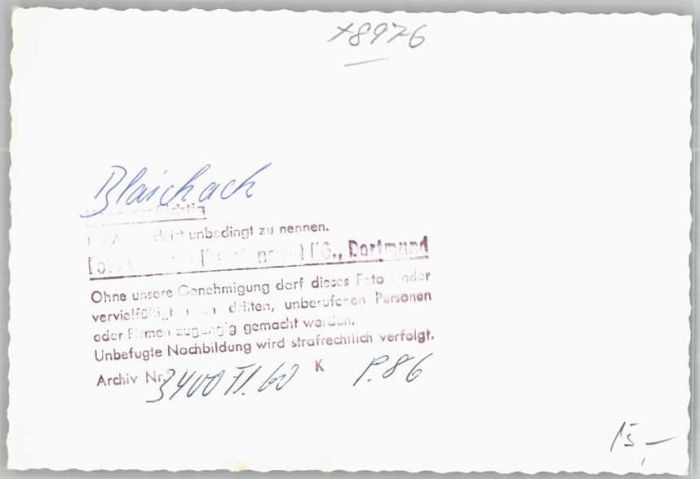 x8976
Blaichach
unbedingt zu nennen.
Dortmund
Ohne unsere Genehmigung darf dieses Foto oder
vervielfältigt dritten, unberufenen Personen
oder Firmen zugängig gemacht werden.
Unbefugte Nachbildung wird strafrechtlich verfolgt.
Archiv Nr. 3400 Fl. 60 K P.86
15,-